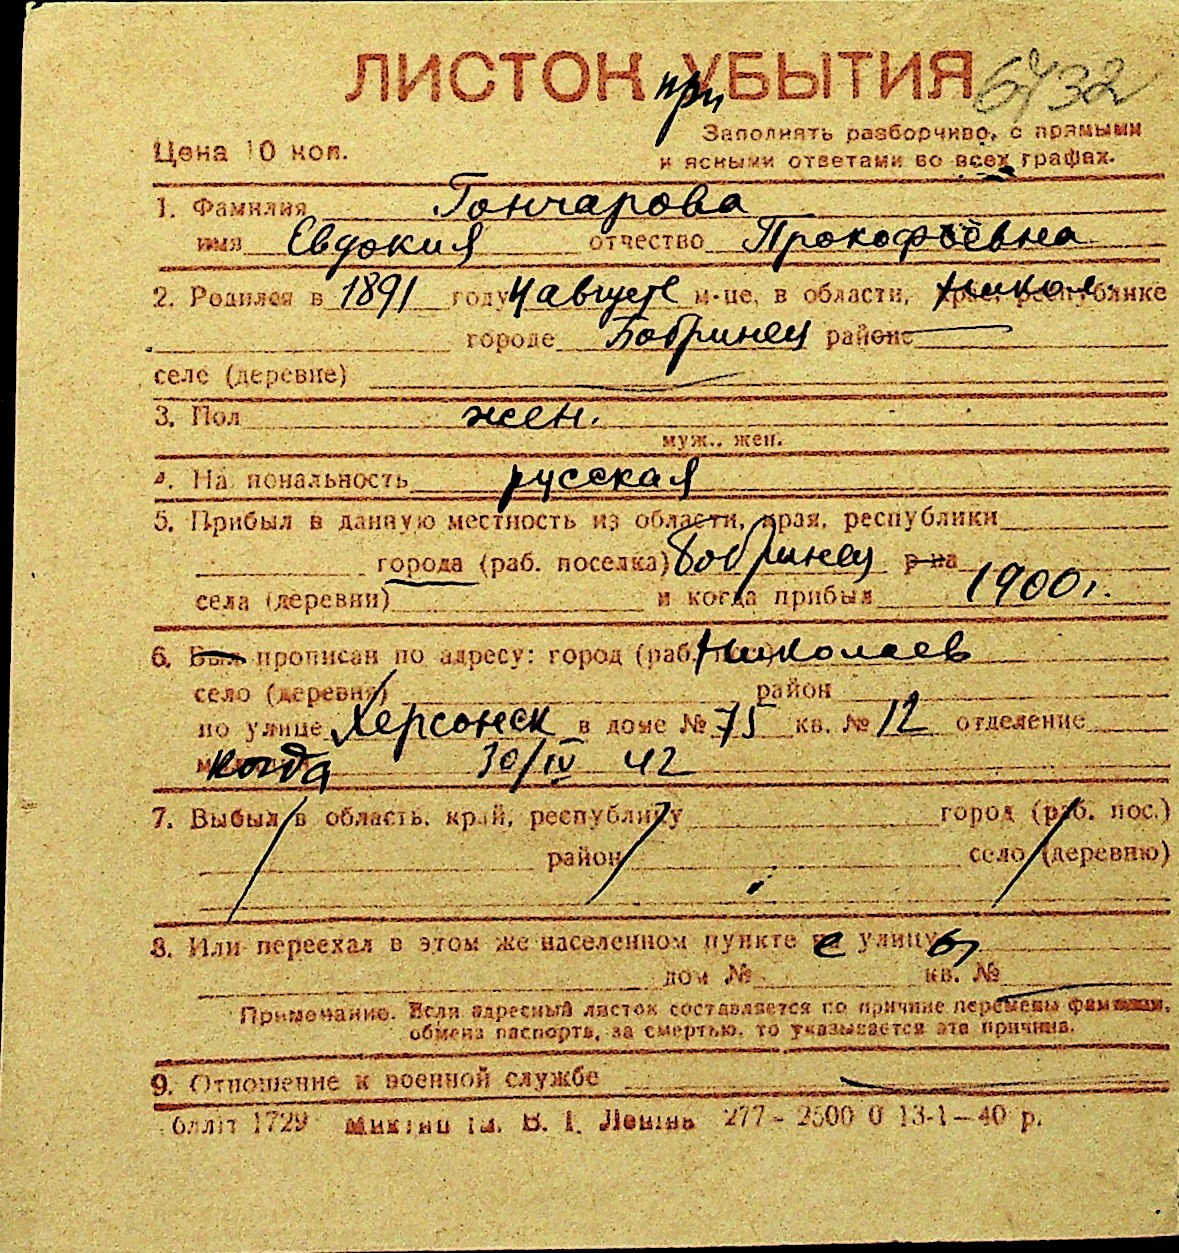 ЛИСТОК при УБЫТИЯ 6732
Цена 10 коп.
Заполнять разборчиво, с прямыми
и ясными ответами во всех графах.
1. Фамилия Гончарова
имя Евдокия отчество Прокофьевна
2. Родился в 1891 году 4 августе м-це, в области, края, республике Никол.
городе Бобринец районе
селе (деревне)
3. Пол жен.
муж., жен.
4. Национальность русская
5. Прибыл в данную местность из области, края, республики
города (раб. поселка) Бобринец р-на
села (деревни) и когда прибыл 1900 г.
6. Был прописан по адресу: город (раб. пос.) Николаев
село (деревня) район
по улице Херсонск в доме № 75 кв. № 12 отделение
когда 30/IV 42
7. Выбыл в область, край, республику город (раб. пос.)
район село (деревню)
8. Или переехал в этом же населенном пункте с улицы
дом № кв. №
Примечание. Если адресный листок составляется по причине перемены фамилии,
обмена паспорта, за смертью, то указывается эта причина.
9. Отношение к военной службе
блліт 1729 Ленінь 277 - 2500 0 13-1-40 р.